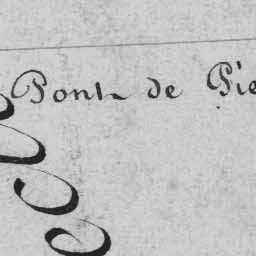 Pont de Pie